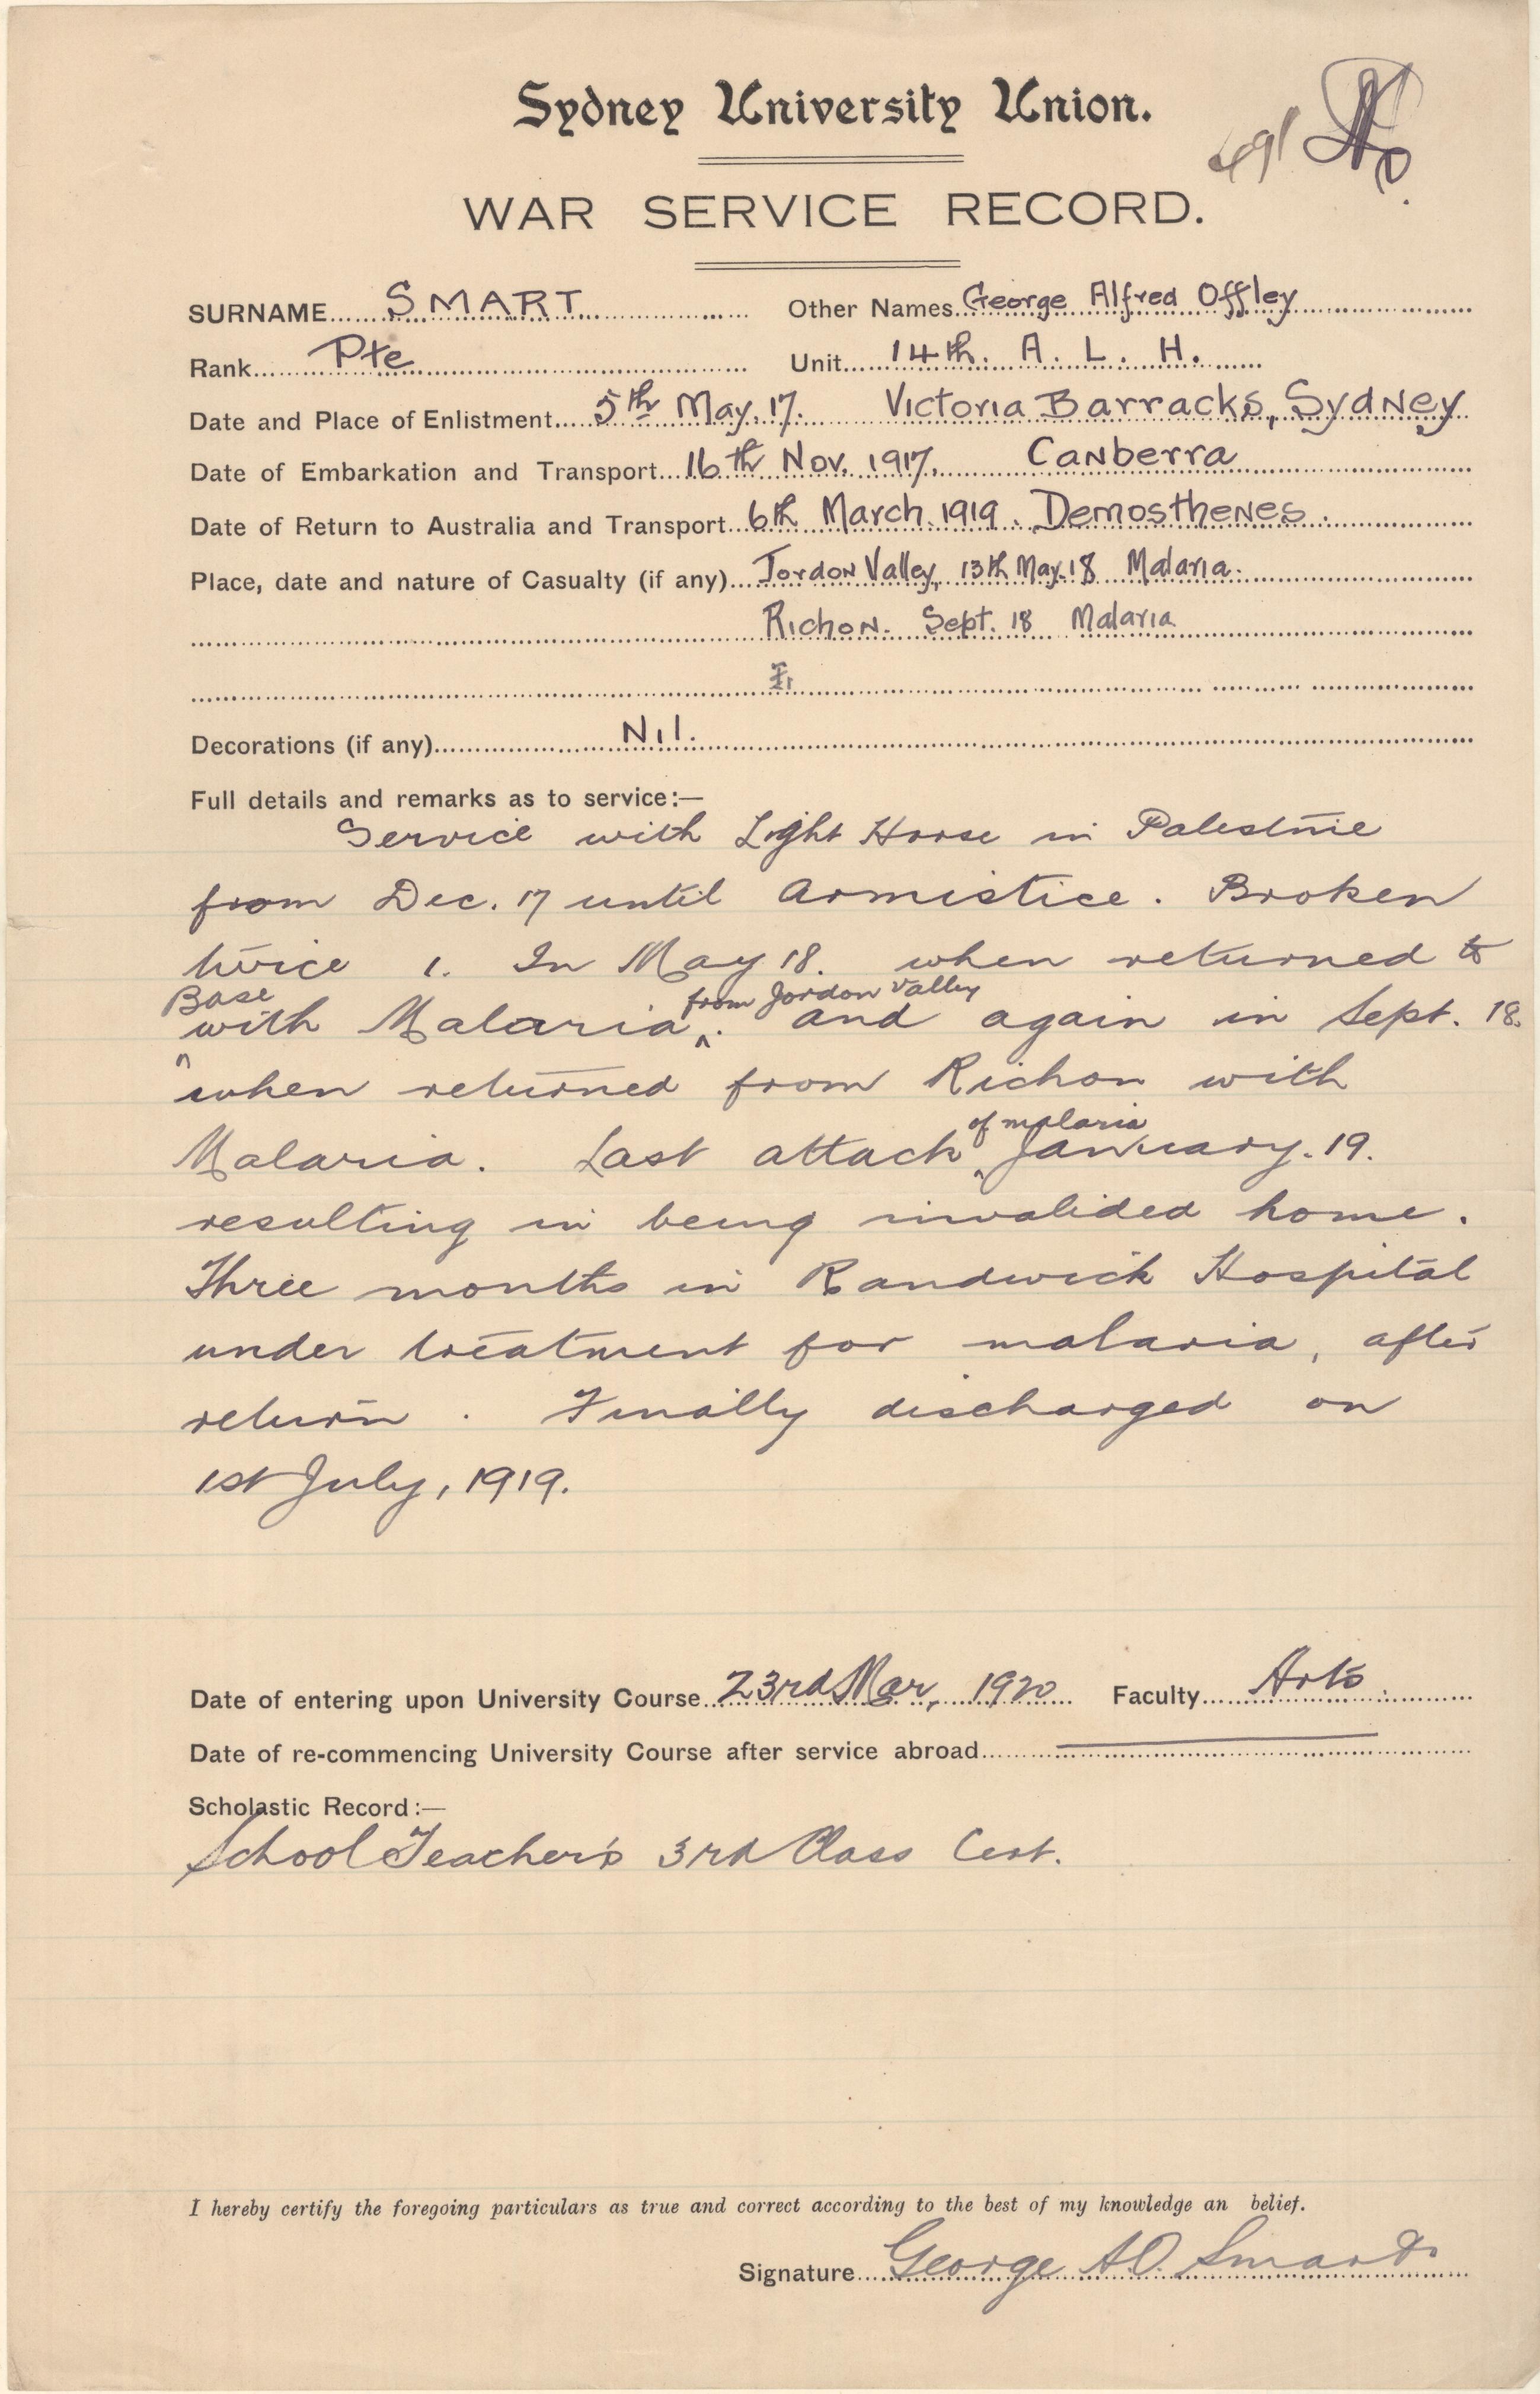 Sydney University Union.
491
WAR SERVICE RECORD.
SURNAME SMART Other Names George Alfred Offley
Rank Pte Unit 14th. A. L. H.
Date and Place of Enlistment 5th May. 17. Victoria Barracks, Sydney
Date of Embarkation and Transport 16th Nov. 1917. Canberra
Date of Return to Australia and Transport 6th March 1919. Demosthenes.
Place, date and nature of Casualty (if any) Jordon Valley, 13th May. 18 Malaria.
Richon. Sept. 18 Malaria
Decorations (if any) Nil.
Full details and remarks as to service:—
Service with Light Horse in Palestine
from Dec. 17 until Armistice. Broken
twice 1. In May 18. when returned to
Base from Jordon Valley
with Malaria. and again in Sept. 18.
when returned from Richon with
of malaria
Malaria. Last attack January. 19.
resulting in being invalided home.
Three months in Randwick Hospital
under treatment for malaria, after
return. Finally discharged on
1st July, 1919.
Date of entering upon University Course 23rd Mar, 1920 Faculty Arts.
Date of re-commencing University Course after service abroad
Scholastic Record:—
School Teacher's 3rd Class Cert.
I hereby certify the foregoing particulars as true and correct according to the best of my knowledge an belief.
Signature George A.O. Smart